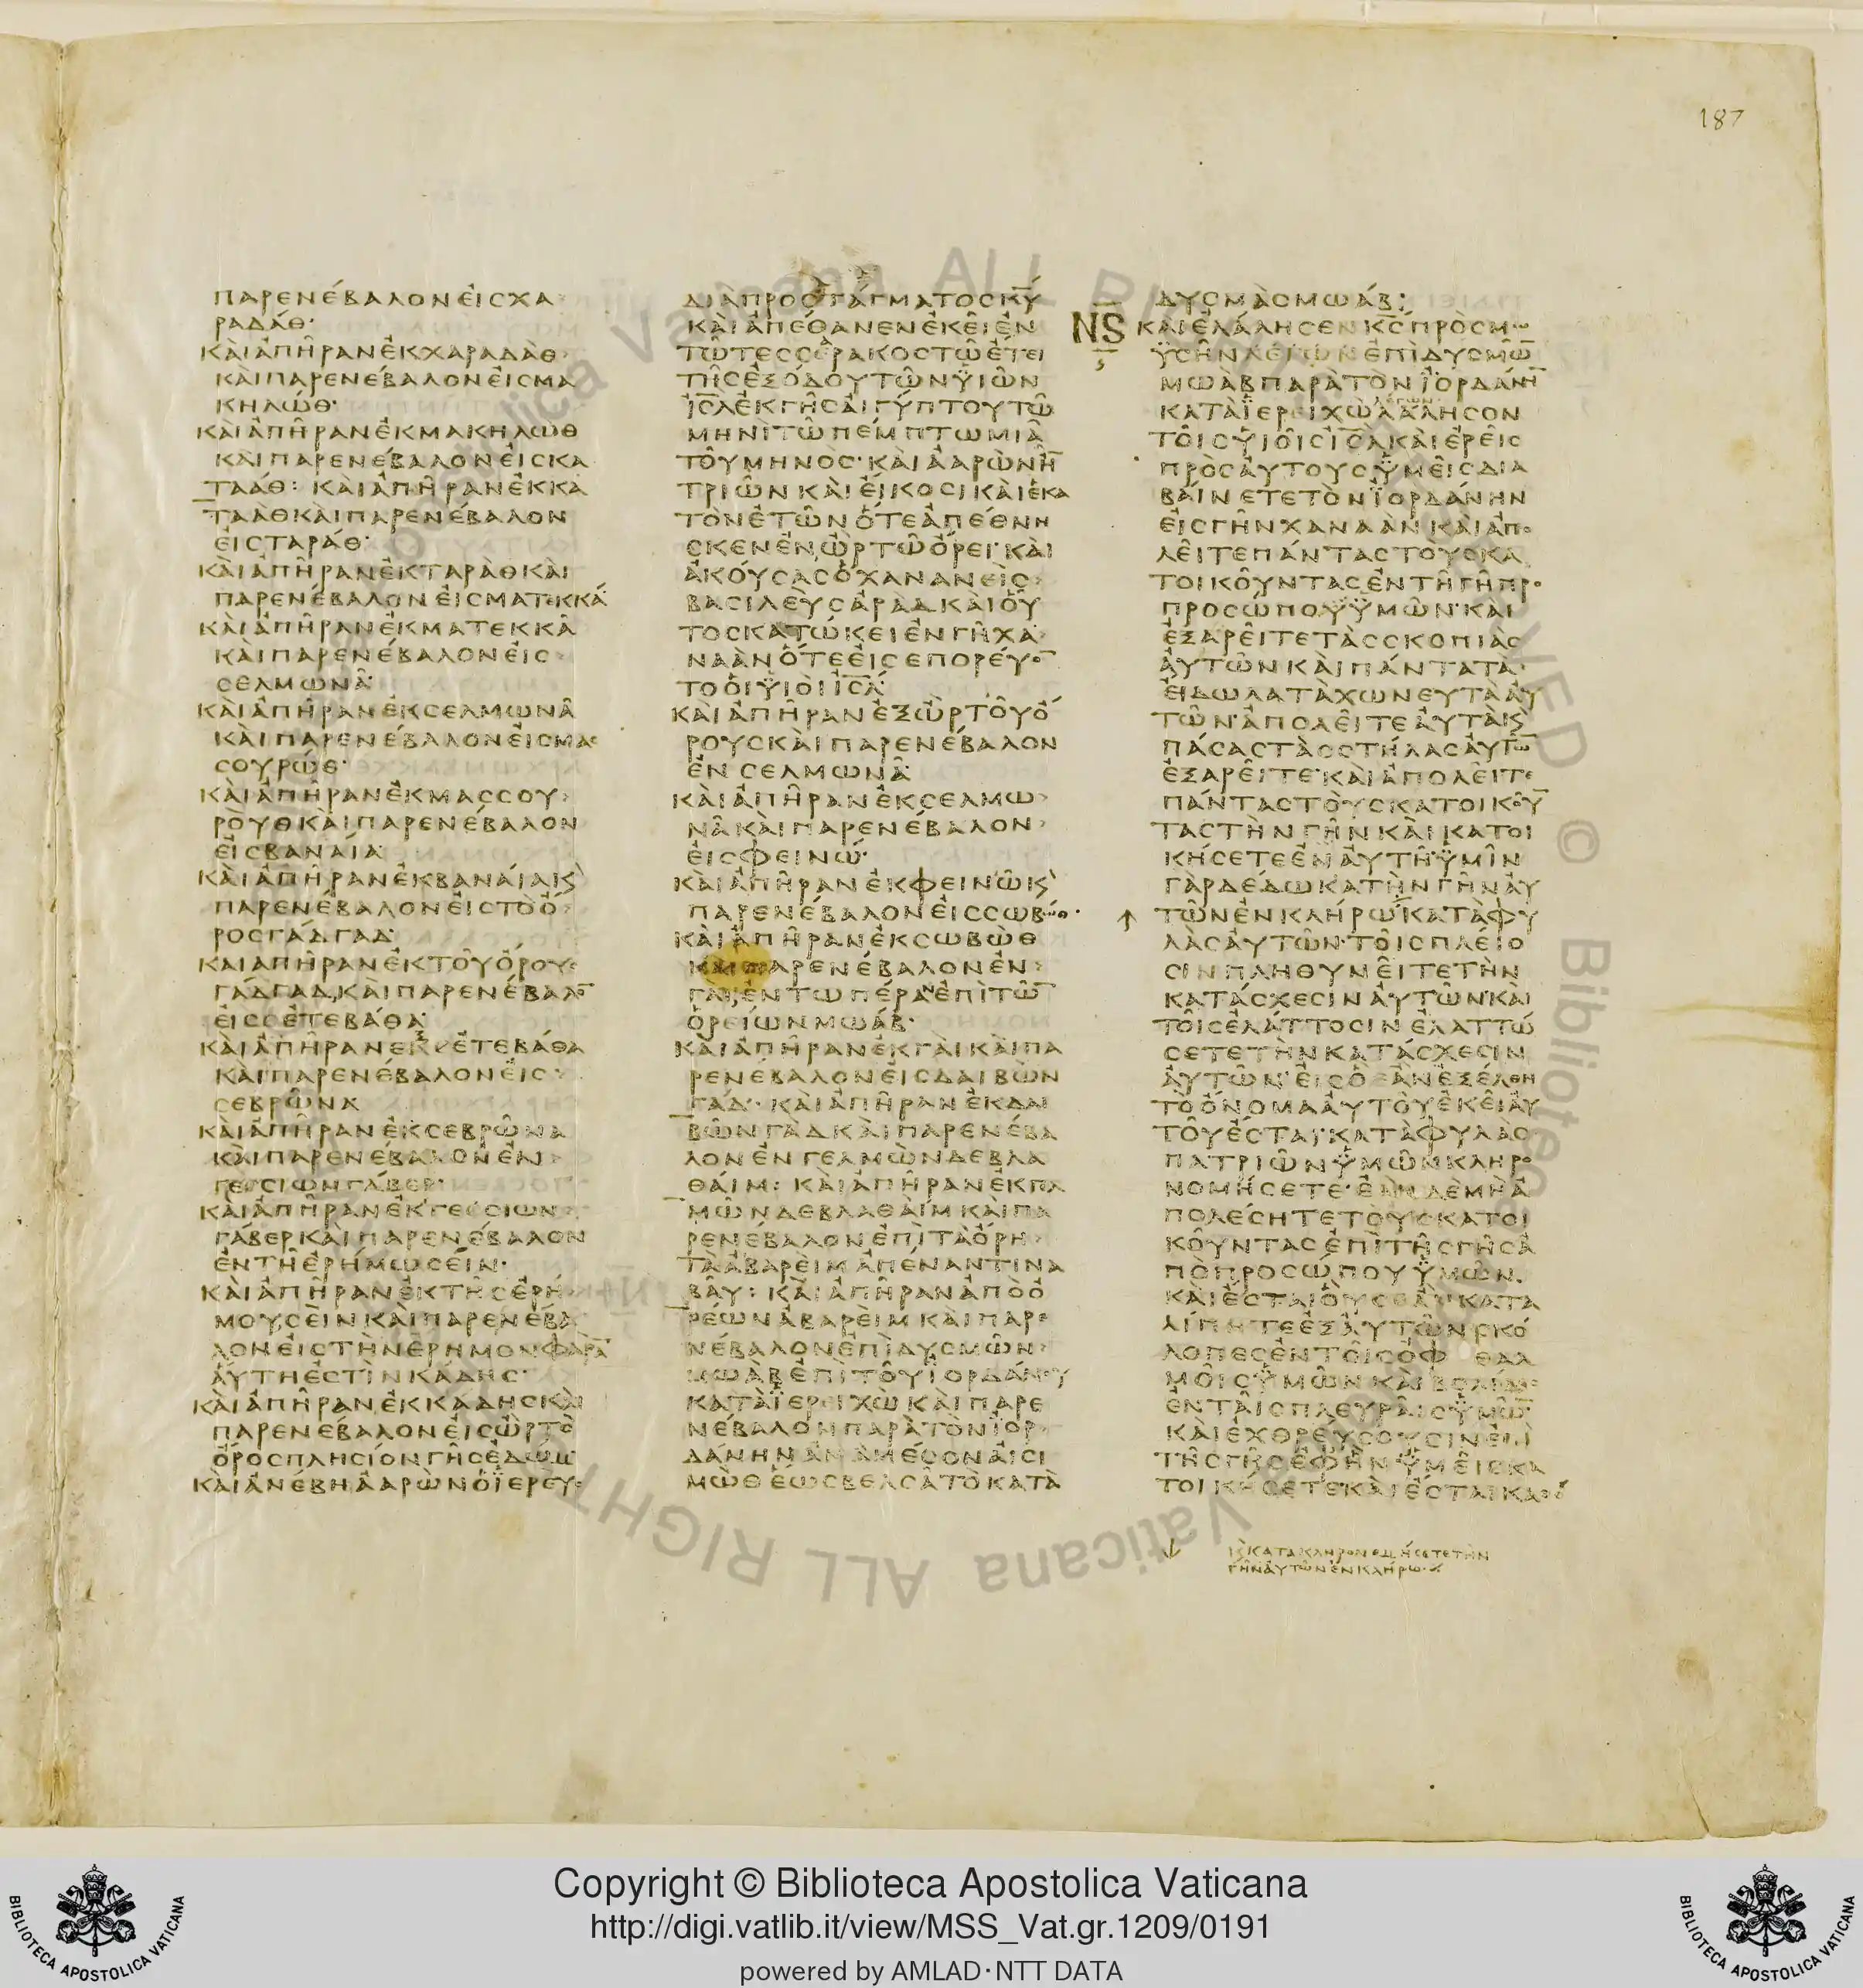 187
ΠΑΡΕΝΈΒΑΛΟΝΕἸϹΧΑ
ΡΑΔΆΘ·
ΚΑῚἈΠΗ͂ΡΑΝἘΚΧΑΡΑΔᾺΘ
ΚΑῚΠΑΡΕΝΈΒΑΛΟΝΕἸϹΜΑ
ΚΗΛΏΘ·
ΚΑῚἈΠΗ͂ΡΑΝἘΚΜΑΚΗΛῺΘ
ΚΑῚΠΑΡΕΝΈΒΑΛΟΝΕἸϹΚΑ
ΤΑΆΘ: ΚΑῚἈΠΗ͂ΡΑΝἘΚΚΑ
ΤΑᾺΘΚΑῚΠΑΡΕΝΈΒΑΛΟΝ
ΕἸϹΤΑΡΆΘ·
ΚΑῚἈΠΗ͂ΡΑΝἘΚΤΑΡᾺΘΚΑῚ
ΠΑΡΕΝΈΒΑΛΟΝΕἸϹΜΑΤΕΚΚΆ
ΚΑῚἈΠΗ͂ΡΑΝἘΚΜΑΤΕΚΚΑ͂
ΚΑῚΠΑΡΕΝΈΒΑΛΟΝΕἸϹ
ϹΕΛΜΩΝΑ͂·
ΚΑῚἈΠΗ͂ΡΑΝἘΚϹΕΛΜΩΝΑ͂
ΚΑῚΠΑΡΕΝΈΒΑΛΟΝΕἸϹΜΑϹ
ϹΟΥΡΏΘ·
ΚΑῚἈΠΗ͂ΡΑΝἘΚΜΑϹϹΟΥ
ΡῸΥΘΚΑῚΠΑΡΕΝΈΒΑΛΟΝ
ΕἸϹΒΑΝΑΊΑ·
ΚΑῚἈΠΗ͂ΡΑΝἘΚΒΑΝΑΊΑϗ
ΠΑΡΕΝΈΒΑΛΟΝΕἸϹΤῸὌ
ΡΟϹΓΆΔΓΑΔ·
ΚΑΙΑΠΗ͂ΡΑΝἘΚΤΟΥ͂ὌΡΟΥϹ
ΓΆΔΓΑΔ,ΚΑῚΠΑΡΕΝΈΒΑΛΟ̅
ΕἸϹϹΕΤΕΒΆΘΑ·
ΚΑῚἈΠΗ͂ΡΑΝΕΞϹΕΤΕΒΆΘΑ
ΚΑῚΠΑΡΕΝΈΒΑΛΟΝΕἸϹ
ϹΕΒΡΩ͂ΝΑ
ΚΑῚἈΠΗ͂ΡΑΝἘΚϹΕΒΡΩ͂ΝΑ
ΚΑῚΠΑΡΕΝΈΒΑΛΟΝἘΝ
ΓΕϹϹΙΩΝΓΆΒΕΡ·
ΚΑῚἈΠΗ͂ΡΑΝἘΚΓΕϹϹΙΩΝ
ΓΆΒΕΡΚΑῚΠΑΡΕΝΈΒΑΛΟΝ
ἘΝΤΗ͂ἘΡΉΜΩϹΕΊΝ·
ΚΑῚἈΠΗ͂ΡΑΝἘΚΤΗ͂ϹἘΡΉ
ΜΟΥϹΕῚΝΚΑῚΠΑΡΕΝΈΒΑ
ΛΟΝΕἸϹΤῊΝἜΡΗΜΟΝΦΑΡΆ̅
ἈΎΤΗἘϹΤῚΝΚΆΔΗϹ·
ΚΑῚἈΠΗ͂ΡΑΝἘΚΚΆΔΗϹΚΑῚ
ΠΑΡΕΝΈΒΑΛΟΝΕἸϹὪΡΤῸ
ὌΡΟϹΠΛΗϹΊΟΝΓΗ͂ϹἘΔΏΜ·
ΚΑῚἈΝΈΒΗἈΑΡῺΝὉΪΕΡΕΥϹ
ΔΙᾺΠΡΟϹΤΆΓΜΑΤΟϹΚΥ̅
ΚΑῚἈΠΈΘΑΝΕΝἘΚΕΙ͂ἘΝ
ΤΩ͂ΤΕϹϹΕΡΑΚΟϹΤΩ͂ἜΤΕΙ
ΤΗ͂ϹἘΞΌΔΟΥΤΩ͂ΝΫΙΩ͂Ν
ΙϹ̅Λ̅ἘΚΓΗ͂ϹΑἸΓΎΠΤΟΥΤΩ͂
ΜΗΝῚΤΩ͂ΠΈΜΠΤΩΜΙΑ͂
ΤΟΥ͂ΜΗΝῸϹ·ΚΑῚἈΑΡῺΝΗ̅
ΤΡΙΩ͂ΝΚΑῚΕἼΚΟϹΙΚΑῚἙΚΑ
ΤῸΝἘΤΩ͂ΝὍΤΕἈΠΈΘΝΗ
ϹΚΕΝἘΝὪΡΤΩ͂ὌΡΕΙ·ΚΑῚ
ἈΚΟΎϹΑϹὉΧΑΝΑΝΕῚϹ
ΒΑϹΙΛΕῪϹἈΡᾺΔΚΑῚΟὝ
ΤΟϹΚΑΤΏΚΕΙἘΝΓΗ͂ΧΑ
ΝΑᾺΝὍΤΕΕἸϹΕΠΟΡΕΎΟ̅
ΤΟὉΙΫΙΟῚΙϹ̅Λ̅·
ΚΑῚἈΠΗ͂ΡΑΝἘΞὪΡΤΟΥ͂Ὄ
ΡΟΥϹΚΑῚΠΑΡΕΝΈΒΑΛΟΝ
ἘΝϹΕΛΜΩΝΑ͂·
ΚΑῚἈΠΗ͂ΡΑΝἘΚϹΕΛΜΩ
ΝΑ͂ΚΑῚΠΑΡΕΝΈΒΑΛΟΝ
ΕἸϹΦΕΙΝΏ·
ΚΑῚἈΠΗ͂ΡΑΝἘΚΦΕΙΝΩ͂ϗ
ΠΑΡΕΝΈΒΑΛΟΝΕἸϹϹΩΒΏΘ·
ΚΑῚἈΠΗ͂ΡΑΝἘΚϹΩΒῺΘ
ΚΑΙΠΑΡΕΝΈΒΑΛΟΝἘΝ
ΓΑῚ,ἘΝΤΩΠΈΡΑΝἘΠῚΤΩ̅
ὈΡΕΊΩΝΜΩΆΒ·
ΚΑῚἈΠΗ͂ΡΑΝἘΚΓΑῚΚΑῚΠΑ
ΡΕΝΈΒΑΛΟΝΕἸϹΔΑΙΒῺΝ
ΓΆΔ· ΚΑῚἈΠΗ͂ΡΑΝἘΚΔΑΙ
ΒῺΝΓᾺΔΚΑῚΠΑΡΕΝΈΒΑ
ΛΟΝἘΝΓΕΛΜῺΝΔΕΒΛΑ
ΘΆΙΜ: ΚΑῚἈΠΗ͂ΡΑΝἘΚΓΕΛ
ΜῺΝΔΕΒΛΑΘΆΙΜΚΑῚΠΑ
ΡΕΝΈΒΑΛΟΝἘΠῚΤᾺὌΡΗ
ΤᾺἈΒΑΡΕῚΜἈΠΈΝΑΝΤΙΝΑ
ΒΑΥ͂: ΚΑῚἈΠΗ͂ΡΑΝἈΠῸὈ
ΡΈΩΝἈΒΑΡΕῚΜΚΑῚΠΑΡΕ
ΝΈΒΑΛΟΝἘΠῚΔΥϹΜΩ͂Ν
ΜΩᾺΒἘΠῚΤΟΥ͂ΪΟΡΔΆΝΟΥ
ΚΑΤᾺΪΕΡΕΙΧῺΚΑῚΠΑΡΕ
ΝΈΒΑΛΟΝΠΑΡᾺΤῸΝΪΟΡ
ΔΆΝΗΝἈΝᾺΜΈϹΟΝΑἸϹΙ
ΜῺΘἝΩϹΒΕΛϹΑ͂ΤῸΚΑΤᾺ
ΔΥϹΜᾺϹΜΩΆΒ:
ΝϚ ΚΑῚἘΛΆΛΗϹΕΝΚϹ̅ΠΡῸϹΜΩ
ΫϹΗ͂ΝΛΈΓΩΝἘΠῚΔΥϹΜΩ̅
ΜΩᾺΒΠΑΡᾺΤῸΝΪΟΡΔΆΝΗ̅
ΛΈΓΩΝ
ΚΑΤᾺΪΕΡΕΙΧῺΛΆΛΗϹΟΝ
ΤΟΙ͂ϹΫΙΟΙ͂ϹΙϹ̅Λ̅ΚΑῚἘΡΕΙ͂Ϲ
ΠΡῸϹΑΥΤΟΥϹΫΜΕΙ͂ϹΔΙΑ
ΒΑΊΝΕΤΕΤῸΝΪΟΡΔΆΝΗΝ
ΕἸϹΓΗ͂ΝΧΑΝΑᾺΝΚΑῚἈΠΟ
ΛΕΙ͂ΤΕΠΆΝΤΑϹΤΟῪϹΚΑ
ΤΟΙΚΟΥ͂ΝΤΑϹἘΝΤΗ͂ΓΗ͂ΠΡΟ
ΠΡΟϹΏΠΟΥΫΜΩ͂Ν·ΚΑῚ
ἘΞΑΡΕΙ͂ΤΕΤᾺϹϹΚΟΠΙᾺϹ
ἈΥΤΩ͂ΝΚΑῚΠΆΝΤΑΤᾺ
ΕἼΔΩΛΑΤᾺΧΩΝΕΥΤΑἈΥ
ΤΩ͂Ν·ἈΠΟΛΕΙ͂ΤΕἈΥΤᾺϗ
ΠΆϹΑϹΤᾺϹϹΤΉΛΑϹἈΥΤΩ̅
ἘΞΑΡΕΙ͂ΤΕ·ΚΑῚἈΠΟΛΕΙ͂ΤΕ
ΠΆΝΤΑϹΤΟῪϹΚΑΤΟΙΚΟΥ̅
ΤΑϹΤῊΝΓΗ͂ΝΚΑῚΚΑΤΟΙ
ΚΉϹΕΤΕἘΝἈΥΤΗ͂·ΫΜΙ͂Ν
ΓᾺΡΔΈΔΩΚΑΤῊΝΓΗ͂ΝἈΥ
ΤΩ͂ΝἘΝΚΛΉΡΩ·ΚΑΤᾺΦΥ
ΛᾺϹἈΥΤΩ͂Ν·ΤΟΙ͂ϹΠΛΕΊΟ
ϹΙΝΠΛΗΘΥΝΕΙ͂ΤΕΤῊΝ
ΚΑΤΆϹΧΕϹΙΝἈΥΤΩ͂ΝΚΑῚ
ΤΟΙ͂ϹἘΛΆΤΤΟϹΙΝἘΛΑΤΤΏ
ϹΕΤΕΤῊΝΚΑΤΆϹΧΕϹΙΝ
ἈΥΤΩ͂Ν·ΕἸϹὋἘᾺΝἘΞΈΛΘΗ
ΤῸὌΝΟΜΑΑΥΤΟΥ͂ἘΚΕΙ͂ἈΥ
ΤΟΥ͂ἜϹΤΑΙ·ΚΑΤᾺΦΥΛᾺϹ
ΠΑΤΡΙΩ͂ΝΫΜΩ͂ΝΚΛΗΡΟ
ΝΟΜΉϹΕΤΕ·ἘᾺΝΔῈΜῊἈ
ΠΟΛΈϹΗΤΕΤΟῪϹΚΑΤΟΙ
ΚΟΥ͂ΝΤΑϹἘΠῚΤΗ͂ϹΓΗ͂ϹἈ
ΠῸΠΡΟϹΏΠΟΥΫΜΩ͂Ν
ΚΑῚἜϹΤΑΙΟὛϹἘᾺΝΚΑΤΑ
ΛΊΠΗΤΕἘΞΑΥΤΩ͂ΝϹΚΌ
ΛΟΠΕϹἘΝΤΟΙ͂ϹὈΦ ΘΑΛ
ΜΟΙ͂ϹΫΜΩ͂ΝΚΑῚΒΟΛΊΔΕϹ
ἘΝΤΑΙ͂ϹΠΛΕΥΡΑΙ͂ϹΫΜΩ̅·
ΚΑῚἘΧΘΡΕΎϹΟΥϹΙΝἘΠῚ
ΤΗ͂ϹΓΗ͂ϹἘΦῊΝΫΜΕΙ͂ϹΚΑ
ΤΟΙΚΉϹΕΤΕ·ΚΑῚἜϹΤΑΙΚΑΘΌ
ϗΚΑΤΑΚΛΗΡΟΝΟΜΉϹΕΤΕΤῊΝ
ΓΗ͂ΝἈΥΤΩ͂ΝἘΝΚΛΉΡΩ·
Copyright © Biblioteca Apostolica Vaticana
http://digi.vatlib.it/view/MSS_Vat.gr.1209/0191
powered by AMLAD·NTT DATA
BIBLIOTECA APOSTOLICA VATICANA
BIBLIOTECA APOSTOLICA VATICANA